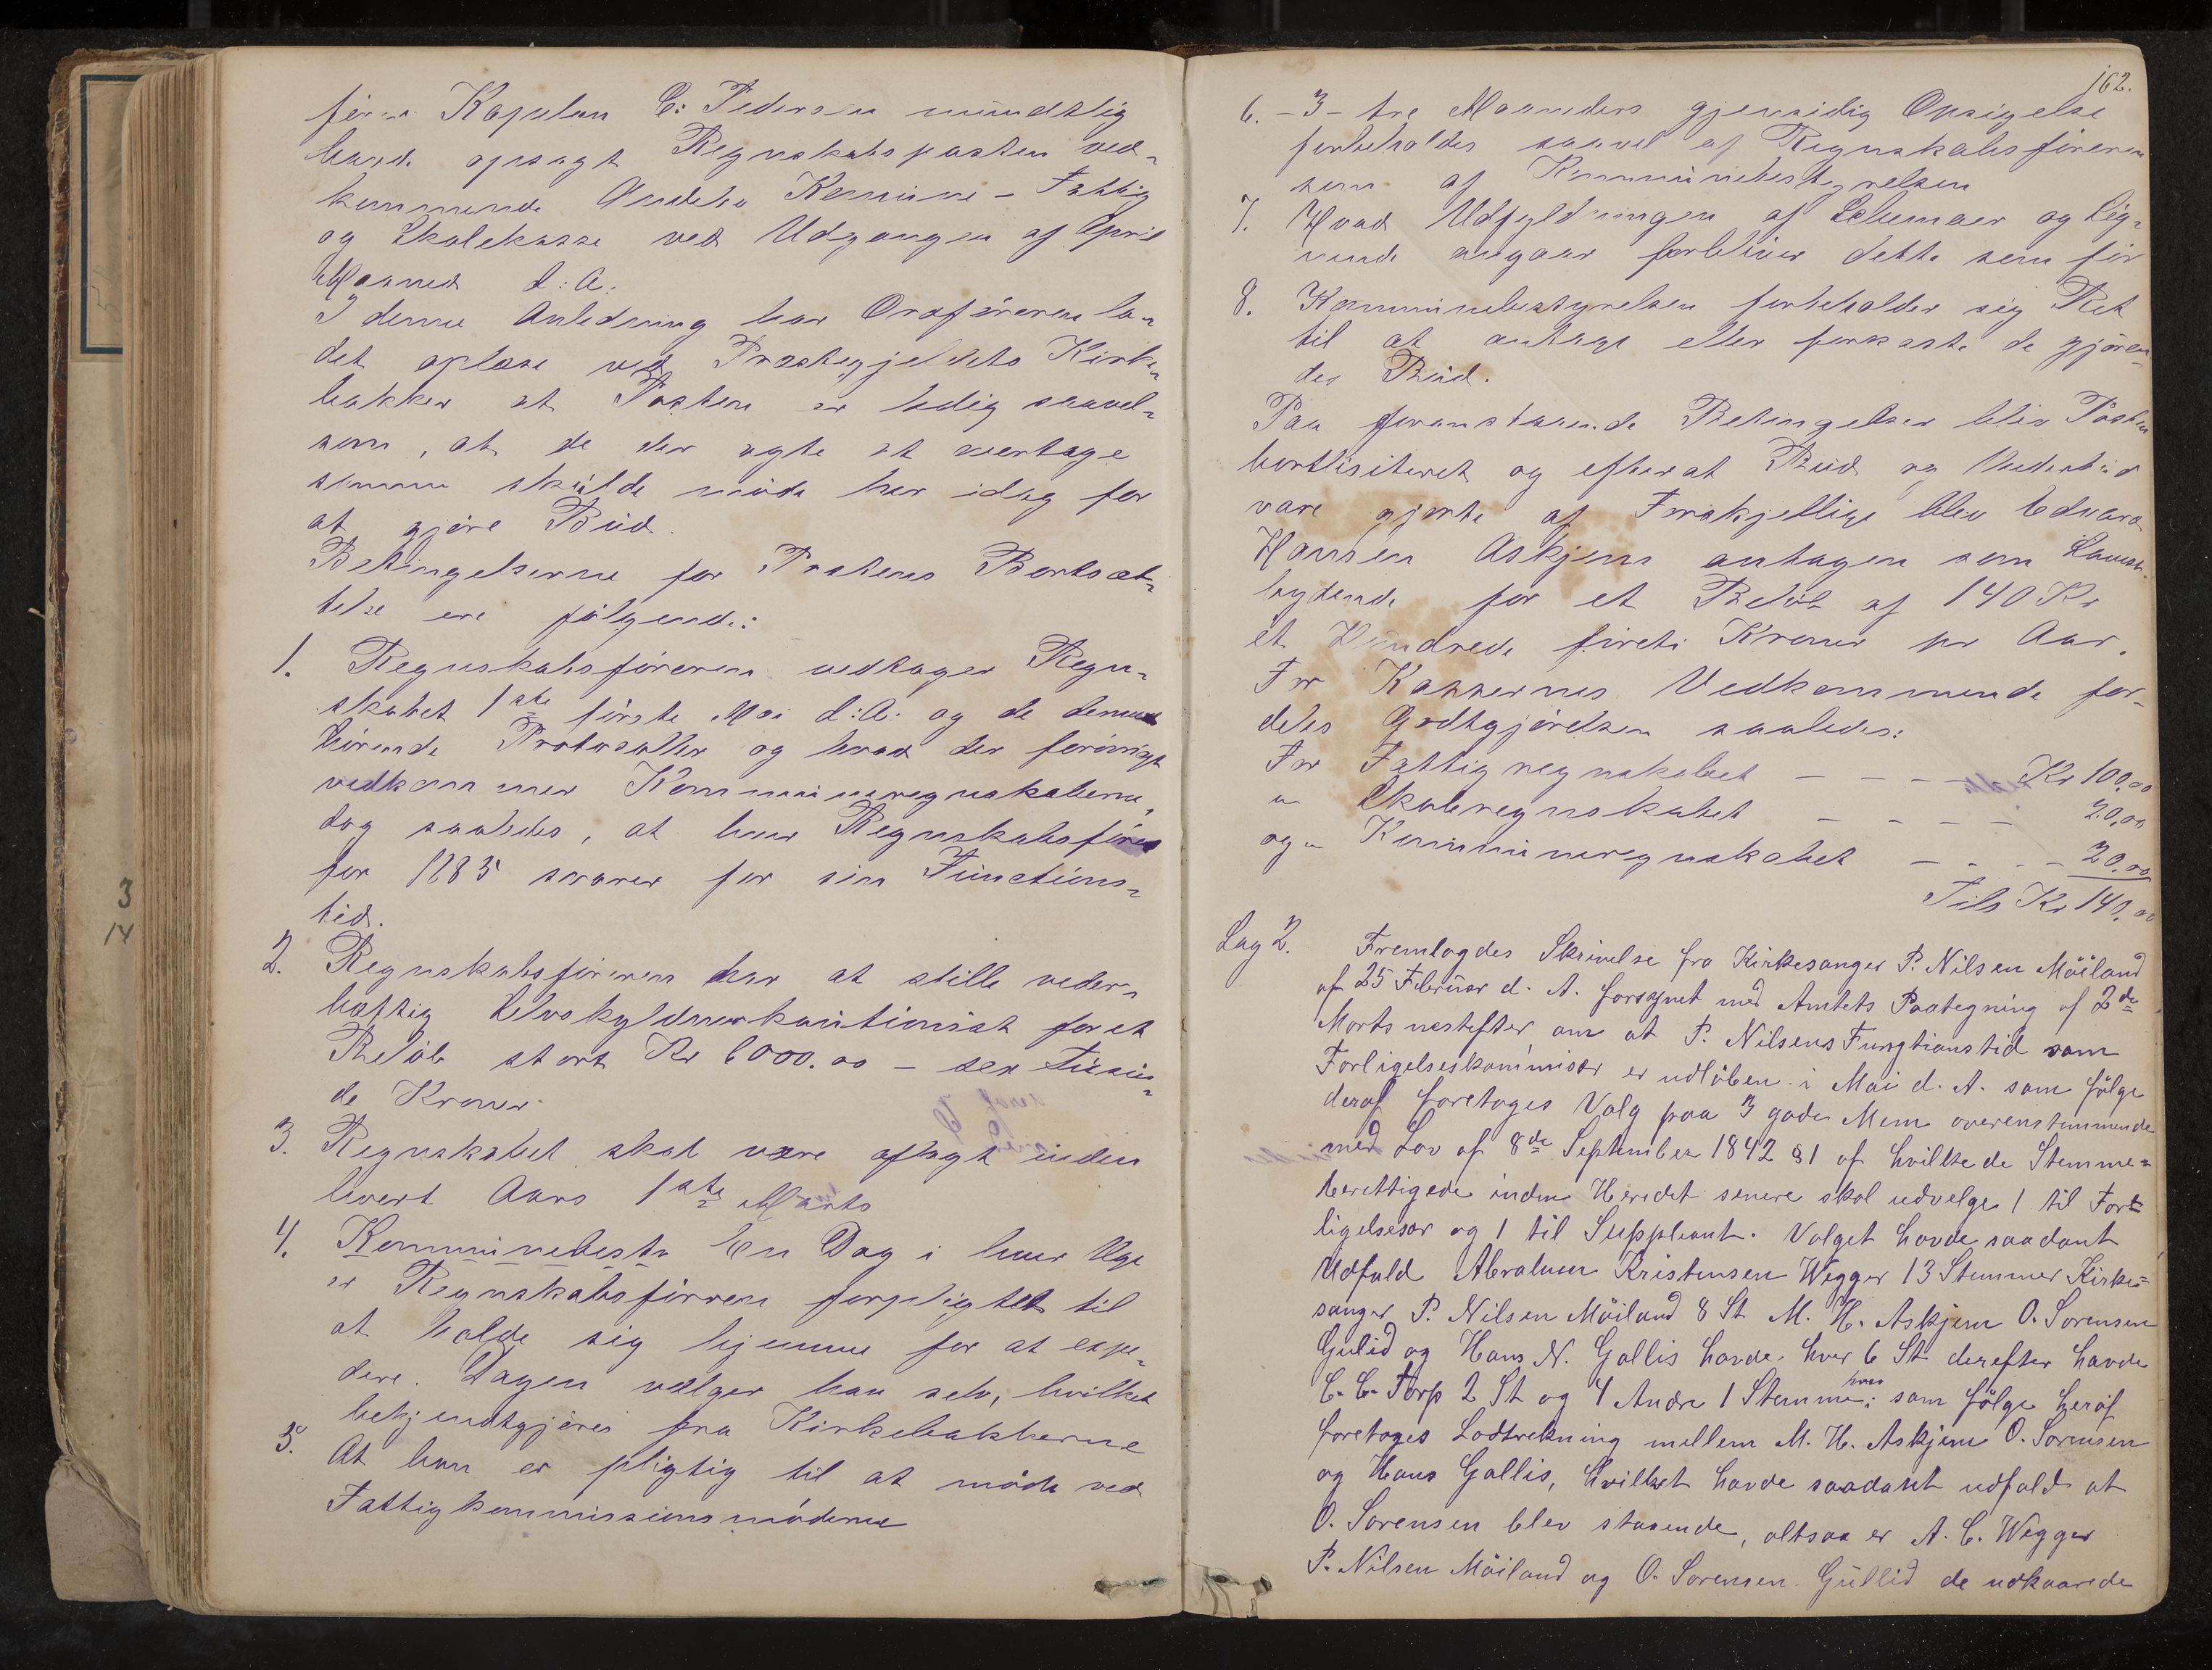 fører Kapelan C: Pedersen mündtlig
havde opsagt Regnskabsposten ved-
kommende Andebu Komüne - Fattig
og Skolekasse ved Udgangen af April
Maaned d: A:
I denne Anledning har Ordføreren la-
det oplæse ved Præstegjeldets Kirke-
bakker at Posten er ledig saavel-
som, at de der agte at overtage
samme skülde møde her idag for
at gjøre Büd.
Betingelserne for Postens Bortsæt-
telse ere følgende:
1. Regnskabsføreren modtager Regn-
skabet 1ste første Mai d: A: og de dermed
hørende Protocoller og hvad der forøvrigt
vedkommer Kommüneregnskaberne,
dog saaledes, at hver Regnskabsfører
for 1885 svarer for sin Fünctions-
tid.
2. Regnskabsføreren har at stille veder-
hæftig Selvskyldnerkautionist for et
Beløb stort Kr 6000.00 - sex Tüsin-
de Kroner
3. Regnskabet skal være aflagt inden
hvert Aars 1ste Marts
4. Kommünebesty En Dag i hver Uge
er Regnskabsføreren forpligtet til
at holde sig hjemme for at expe-
dere. Dagen vælger han selv, hvilket
bekjendtgjøres fra Kirkebakkerne
5. At han er pligtig til at møde ved
Fattigkommissionsmøderne
162.
6. - 3 - tre Maaneders gjensidig Opsigelse
forbeholdes saavel af Regnskabsføreren
som af Kommünebestyrelsen
7. Hvad Udfyldningen af Schemaer og lig-
nende angaar forbliver dette som før
8. Kommünebestyrelsen forbeholder sig Ret
til at antage eller forkaste de gjøren-
des Büd.
Paa foranstaaende Betingelser blev Posten
bortlisiteret og efterat Büd og Underbüd
vare gjorte af Forskjellige blev Edvard
Hansen Askjem antagen som Lavest-
bydende for et Beløb af 140 Kr
et Hündrede føreti Kroner pr Aar.
For Kassernes Vedkommende for-
deles Godtgjørelsen saaledes:
For Fattigregnskabet - - - - Kr 100,00
" Skoleregnskabet - - - - 20,00
og " Kommüneregnskabet - - - - 20,00
Tils Kr 140,00
Sag 2. Fremlagdes Skrivelse fra Kirkesanger P. Nilsen Möiland
af 25 Februar d. A. forsynet med Amtets Paategning af 2de
Marts nestefter om at P. Nilsens Fungtionstid som
Forligelseskommisær er udløben i Mai d. A. som følge
deraf foretages Valg paa 3 gode Mem overenstemmende
med Lov af 8de September 1842 § 1 af hvilke de Stemme-
berettigede inden Heredet senere skal udvelge 1 til For-
ligelsesor og 1 til Suppleant. Valget havde saadant
Udfald Abraham Kristensen Wegger 13 Stemmer Kirke-
sanger P. Nilsen Möiland 8 St M. H. Askjem O. Sorensen
Gulid og Hans N. Gallis havde hver 6 St derefter havde
C. C. Torp 2 St og 4 Andre 1 Stemme hver; som følge heraf
foretages Lodtrekning mellem M. H. Askjem O. Sorensen
og Hans Gallis, hvilket havde saadant udfald at
O. Sorensen blev staaende, altsaa er A. C. Wegger
P. Nilsen Möiland og O. Sorensen Gullid de udkaarede